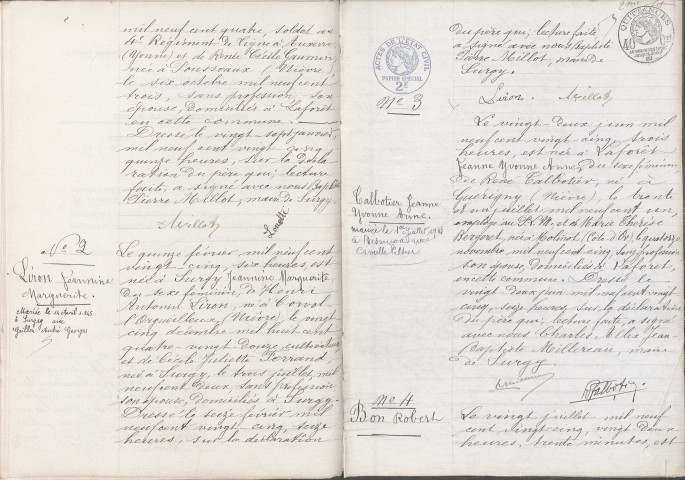 mil neuf cent quatre, soldat au
4e Régiment de Ligne à Auxerre
(Yonne) et de Renée Cécile
née à (Nièvre)
le six octobre mil neuf cent
trois, sans profession, son
épouse, domiciliés à Laforêt
en cette commune.
Dressé le vingt-sept janvier
mil neuf cent vingt cinq
quinze heures, sur la décla
ration du père qui, lecture
faite, a signé avec nous Baptiste
Pierre Millot, maire de Surgy.
Millot
No 2
Liron Jeannine
Marguerite.
Mariée le
à Surgy avec
Georges
Le quinze février mil neuf cent
vingt-cinq, six heures est
née à Surgy, Jeannine Marguerite
du sexe féminin, de Henri
Antonin Liron, né à Corvol
l'Orgueilleux (Nièvre), le vingt
cinq décembre mil huit cent
quatre-vingt-douze, cultivateur
et de Cécile Juliette Ferrand
née à Surgy, le trois juillet, mil
neuf cent deux, sans profession
son épouse, domiciliés à Surgy.
Dressé le seize février mil
neuf cent vingt-cinq, seize
heures, sur la déclaration
du père qui, lecture faite
a signé avec nous Baptiste
Pierre Millot, maire de
Surgy.
Liron. Millot
ACTES DE L'ÉTAT CIVIL
PAPIER SPÉCIAL
2F
QUITTANCES
40
No 3
Talbotier Jeanne
Yvonne Anne.
mariée le 1er juillet 19
à avec
Camille
Le vingt-deux juin mil
neuf cent vingt-cinq, trois
heures, est née à Laforêt
Jeanne Yvonne Anne, du sexe féminin
de René Talbotier, né à
Guérigny (Nièvre), le trente
et un juillet mil neuf cent un,
employé au P.L.M. et de Marie Thérèse
née à Molinot (Côte-d'Or) le quatorze
novembre mil neuf cent cinq, sans profession
son épouse, domiciliés à Laforêt
en cette commune. Dressé le
vingt deux juin mil neuf cent vingt
cinq, seize heures, sur la déclaration
du père qui, lecture faite, a signé
avec nous Charles Alix Jean-
Baptiste Millereau, maire
de Surgy.
Talbotier
No 4
Bon Robert
Le vingt juillet mil neuf
cent vingt-cinq, vingt deux
heures, trente minutes, est